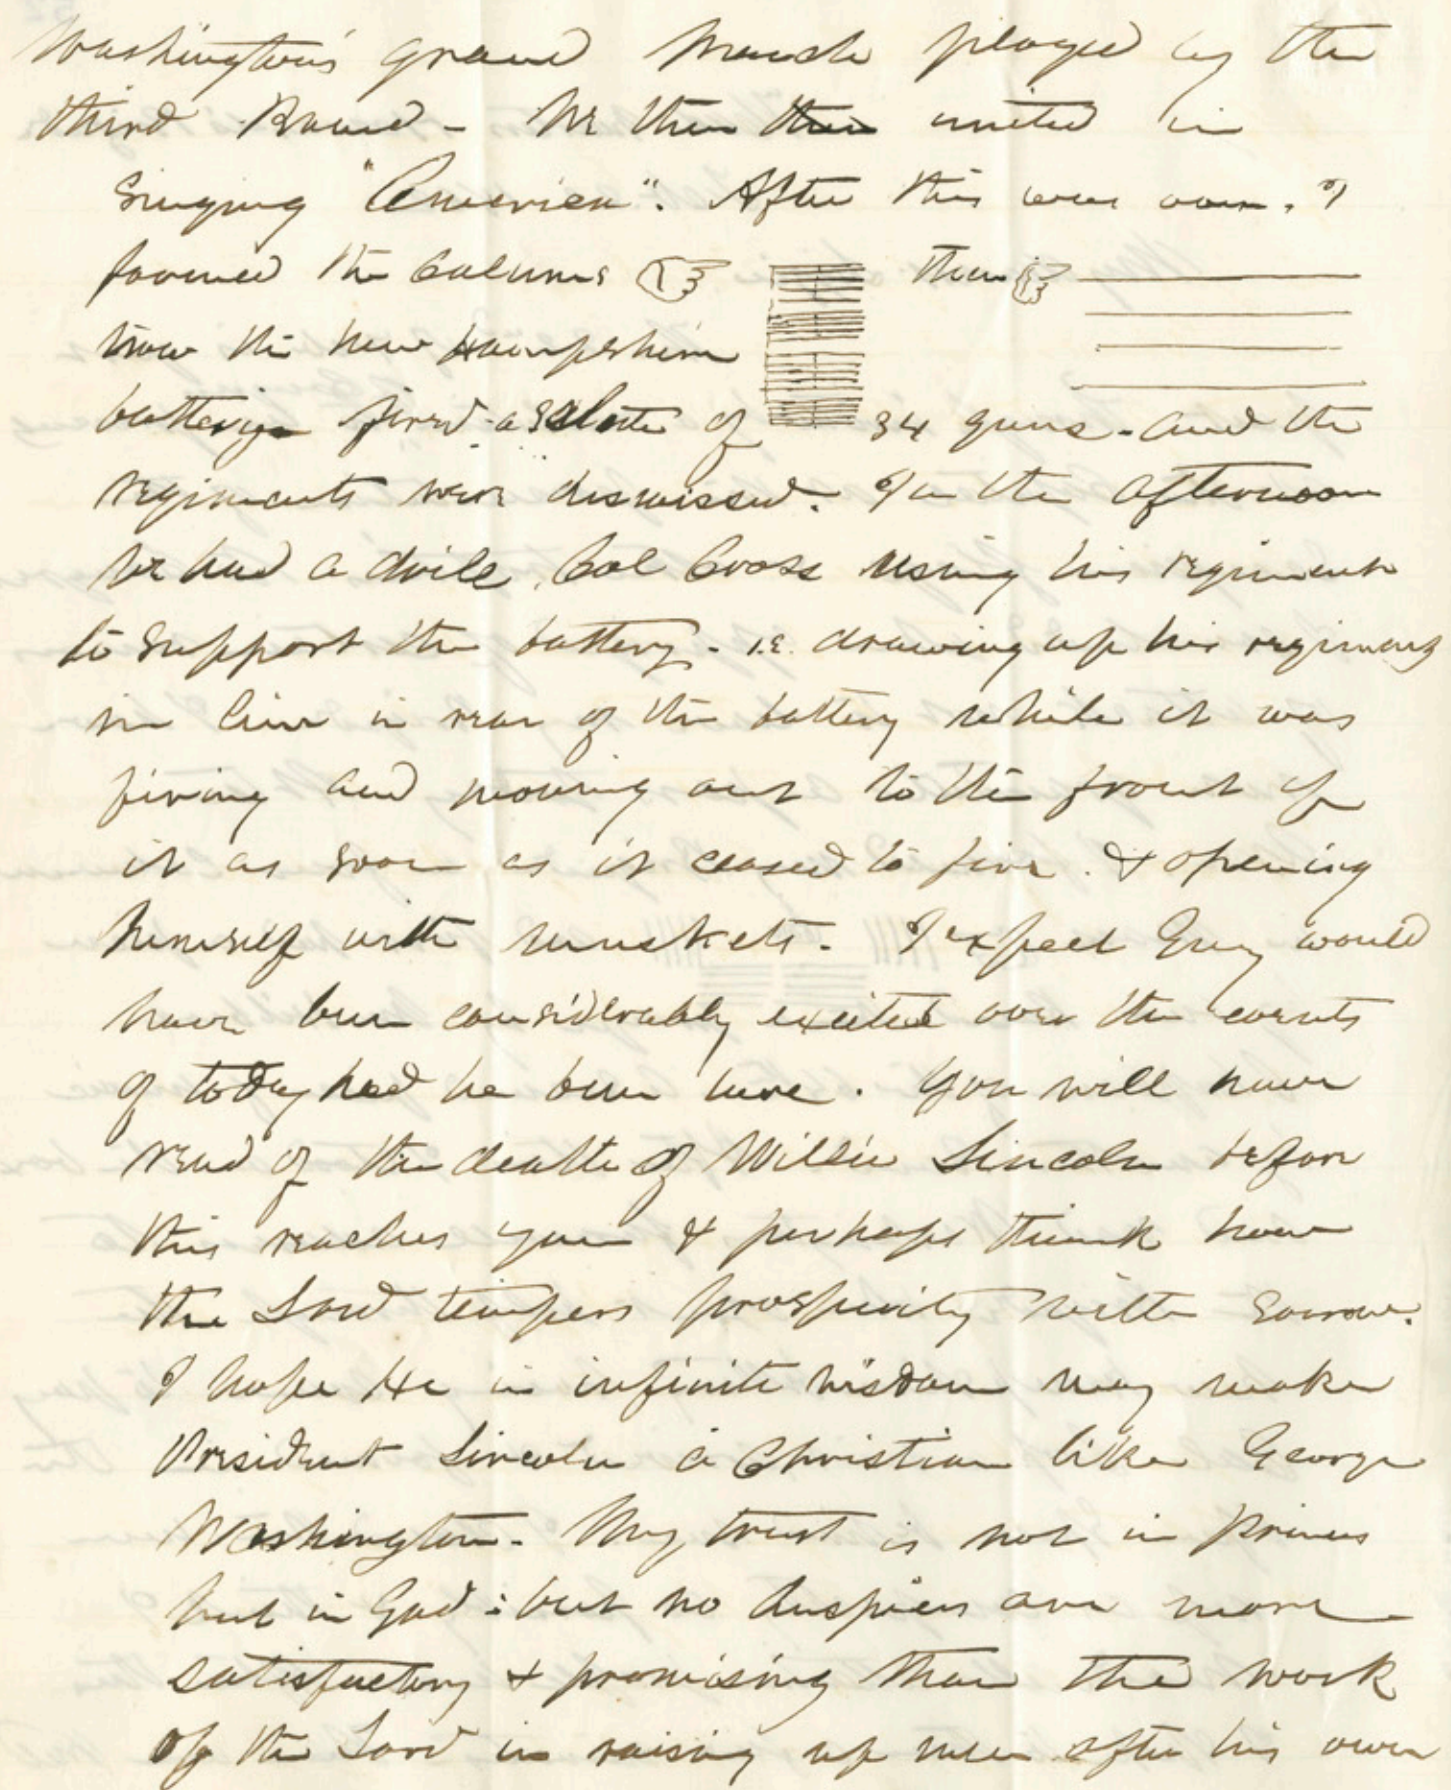 Washington's grand March played by the
third Band - We then then united in
singing "America". After this was over, I
formed the Columns then
now the New Hampshire
battery fired a salute of 34 guns - and the
regiments were dismissed. In the afternoon
we had a drill, Col Cross using his regiment
to support the battery - i.e. drawing up his regiment
in line in rear of the battery while it was
firing and moving out to the front of
it as soon as it ceased to fire & opening
himself with muskets. I expect Guy would
have been considerably excited over the events
of today had he been here. You will have
read of the death of Willie Lincoln before
this reaches you & perhaps think how
the Lord tempers prosperity with sorrow.
I hope He in infinite wisdom may make
President Lincoln a Christian like George
Washington. My trust is not in Princes
but in God: but no auspices are more
satisfactory & promising than the work
of the Lord in raising up men after his own